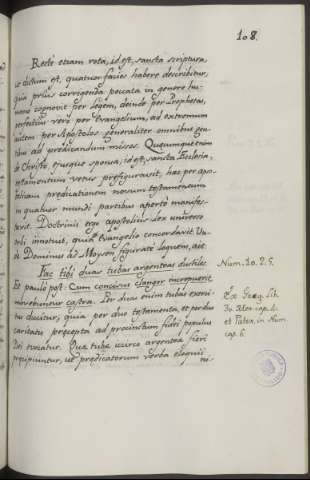 108.
Recte etiam rota, id est, sancta scriptura,
ut dictum est, quatuor facies habere describitur,
quia prius corrigenda peccata in genere hu-
mano cognovit per legem, deinde per Prophetas,
perfectius vero per Evangelium, ad extremum
autem per Apostolos generaliter omnibus gen-
tibus ad prædicandum missos. Quæcumque enim
de Christo, ejusque sponsa, id est, sancta Ecclesia,
testamentum vetus præfiguravit, hæc per apo-
stolicam prædicationem novum testamentum
in quatuor mundi partibus aperte manifes-
Doctrinis ergo apostolius lex universo
orbi innotuit, quia Evangelio concordavit. Un-
de Dominus ad Moysen figurate loquens, ait:
Fac tibi duas tubas argenteas ductiles.
Et paulo post: Cum concisus clangor increpuerit
movebuntur castra. Per duas enim tubas exerci-
tus ducitur, quia per duo testamenta, et per duo
caritatis præcepta ad procinctum fidei populus
Dei vocatur. Quæ tubæ idcirco argenteæ fieri
præcipiuntur, ut prædicatorum verba eloquii
ni-
Num. 10. 2. 5.
Ex Greg. lib.
30. Mor. cap. 4.
et Pater. in Num.
cap. 6.